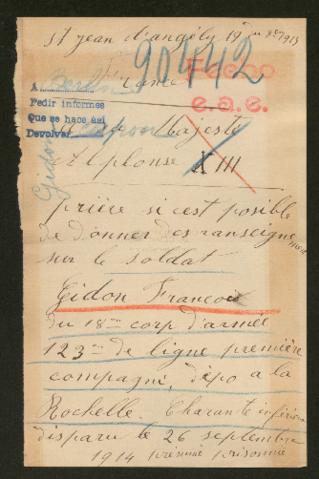 St jean d'angély 19
90442
France
Fecho
e.a.e.
A Berlin
Pedir informes
Que se hace así
Devolver
Gidon
Majesté
Alphonse XIII
prière si c'est posible
de donner des ranseignement
sur le soldat
Gidon François
du 18me corp d'armée
123me de ligne première
compagnie, dépo a la
Rochelle. Charante inférieure
disparu le 26 septembre
1914 présumé prisonnié